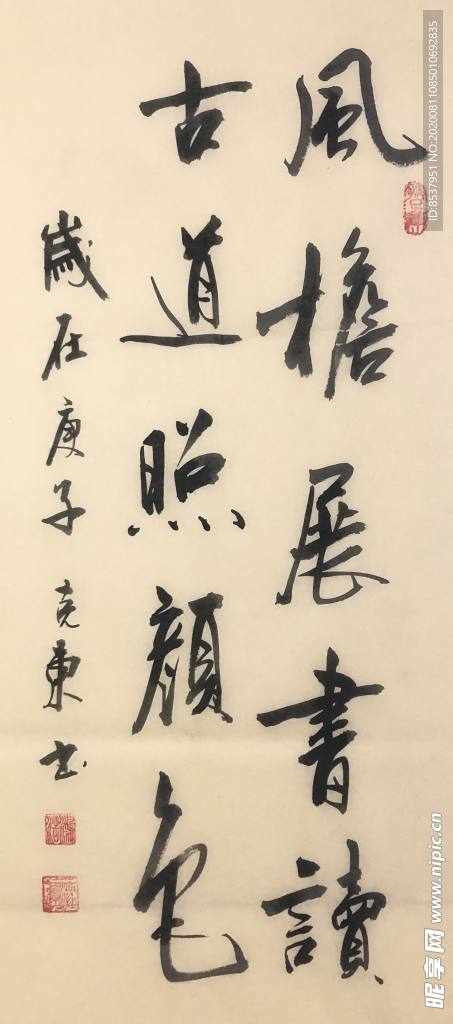 風檐展書讀
古道照顏色
歲在庚子克東书
ID:8537951 NO:20200811085010692835
昵享网 www.nipic.cn